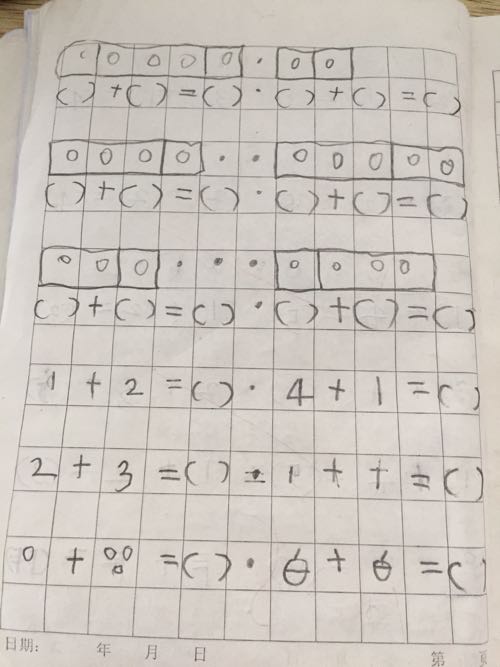 ○ ○ ○ ○ ○ · ○ ○
( ) + ( ) = ( ) · ( ) + ( ) = ( )
○ ○ ○ ○ · · ○ ○ ○ ○ ○
( ) + ( ) = ( ) · ( ) + ( ) = ( )
○ ○ ○ · · · ○ ○ ○ ○
( ) + ( ) = ( ) · ( ) + ( ) = ( )
1 + 2 = ( ) · 4 + 1 = ( )
2 + 3 = ( ) · 1 + 1 = ( )
○ + ○○○ = ( ) · ○ + ○ = ( )
日期: 年 月 日 第 页